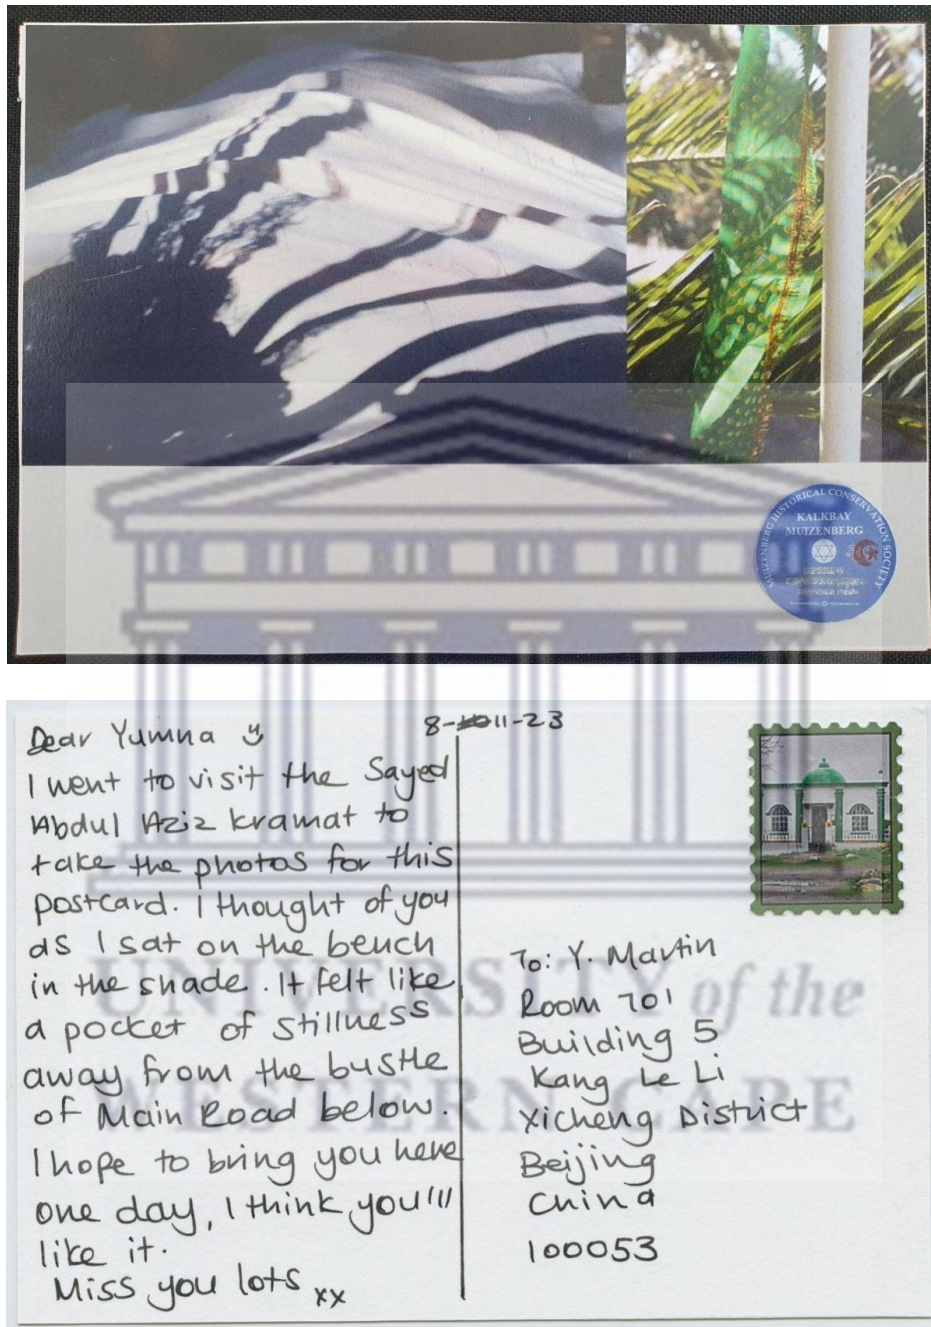 MUIZENBERG HISTORICAL CONSERVATION SOCIETY
KALKBAY
MUIZENBERG
HEBREW
CONGREGATION
8-11-23
Dear Yumna
I went to visit the Sayed
Abdul Aziz kramat to
take the photos for this
postcard. I thought of you
as I sat on the bench
in the shade. It felt like
a pocket of stillness
away from the bustle
of Main Road below.
I hope to bring you here
one day, I think you'll
like it.
Miss you lots xx
To: Y. Martin
Room 701
Building 5
Kang Le Li
Xicheng District
Beijing
China
100053
UNIVERSITY of the
WESTERN CAPE